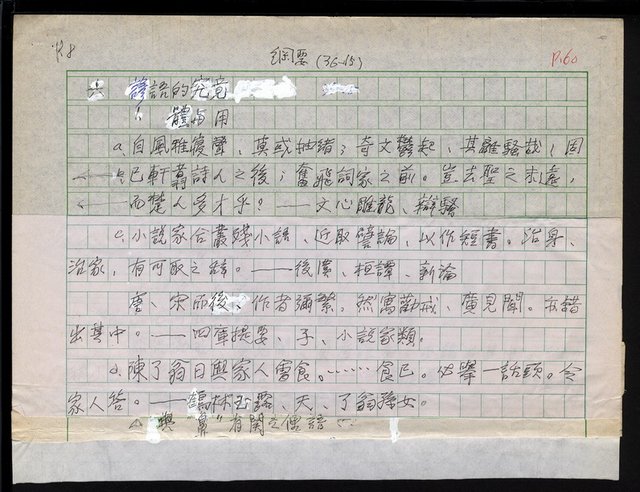 綱要(36-15)
P.60
六 諺語的究竟
1 體與用
a.自風雅寢聲,莫或抽緒;奇文鬱起,其離騷哉!固
已軒翥詩人之後;奮飛詞家之前。豈去聖之未遠,
而楚人多才乎。——文心雕龍、辯騷
c.小說家合叢殘小語,近取譬論,以作短書。治身、
治家,有可取之辭。——後漢、桓譚、新論
唐、宋而後,作者彌繁。然寓勸戒,廣見聞。亦錯
出其中。——四庫提要、子、小說家類。
d.陳了翁日與家人會食。……食已。必舉一話頭。令
家人答。——鶴林玉露、天、了翁孫女。
△與"鼻"有關之俚語